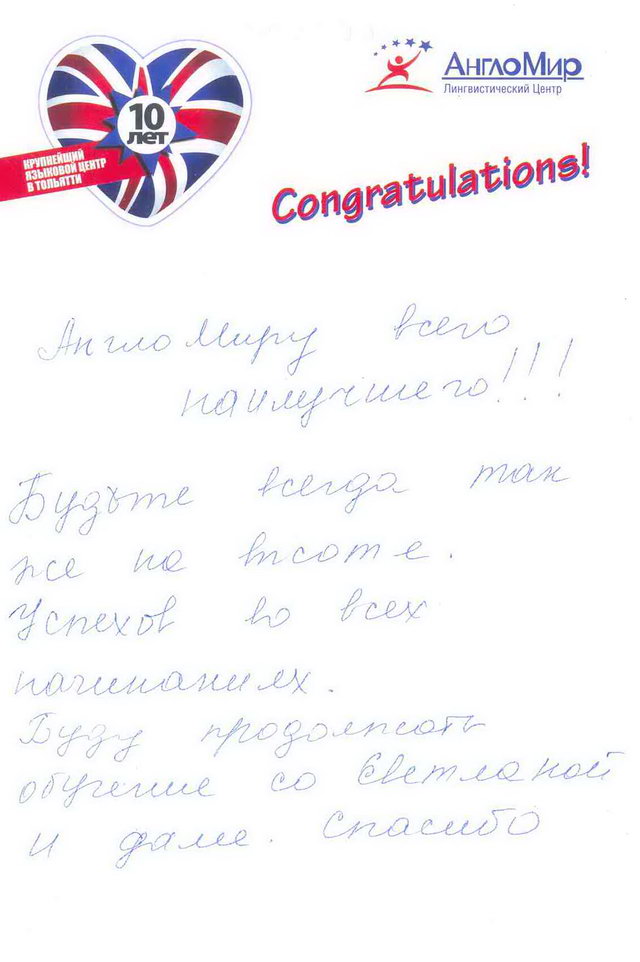 10
лет
КРУПНЕЙШИЙ
ЯЗЫКОВОЙ ЦЕНТР
В ТОЛЬЯТТИ
АнглоМир
Лингвистический Центр
Congratulations!
Англо Миру всего
наилучшего!!!
Будьте всегда так
же на высоте.
Успехов во всех
начинаниях.
Буду продолжать
обучение со Светланой
и далее. Спасибо